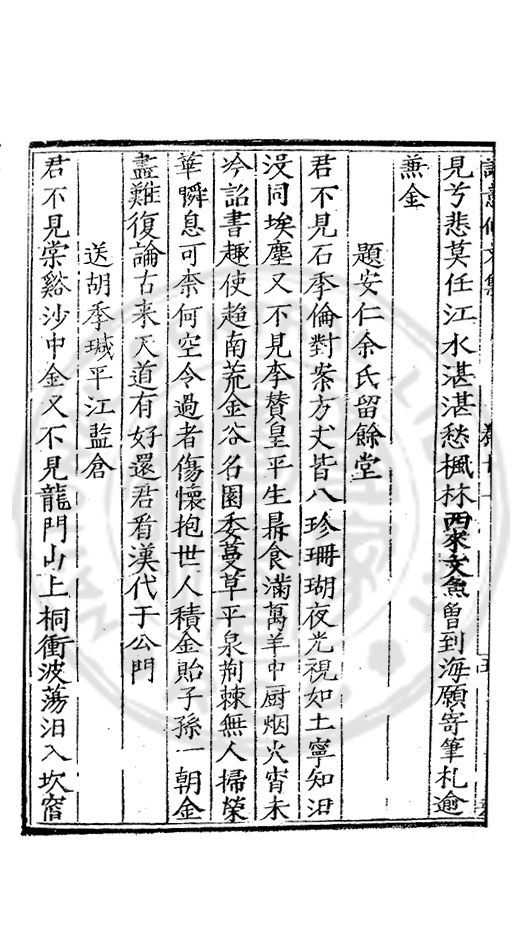 見兮悲莫任江水湛湛愁楓林西來文魚曾到海願寄筆札逾
蒹金
題安仁余氏留餘堂
君不見石季倫對案方丈皆八珍珊瑚夜光視如土寧知汨
沒同埃塵又不見李賛皇平生鼎食滿萬羊中厨烟火宵未
冷詔書趣使趨南荒金谷名園委蔓草平泉荊棘無人掃榮
華瞬息可柰何空令過者傷懷抱世人積金貽子孫一朝金
盡難復論古來天道有好還君看漢代于公門
送胡季瑊平江監倉
君不見棠谿沙中金又不見龍門山上桐衝波蕩汨入坎窞